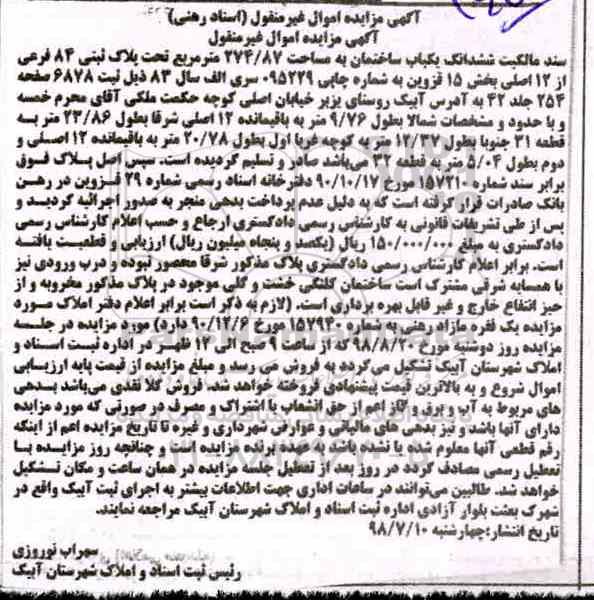 آگهی مزایده اموال غیرمنقول (اسناد رهنی)
آگهی مزایده اموال غیرمنقول
سند مالکیت ششدانگ یکباب ساختمان به مساحت ۲۷۴/۸۷ مترمربع تحت پلاک ثبتی ۸۴ فرعی
از ۱۲ اصلی بخش ۱۵ قزوین به شماره چاپی ۰۹۵۲۲۹ سری الف سال ۸۳ ذیل ثبت ۶۸۷۸ صفحه
۲۵۴ جلد ۴۲ به آدرس آبیک روستای یزبر خیابان اصلی کوچه حکمت ملکی آقای محرم خمسه
و با حدود و مشخصات شمالا بطول ۹/۷۶ به باقیمانده ۱۲ اصلی شرقا بطول ۲۳/۸۶ متر به
قطعه ۳۱ جنوبا بطول ۱۲/۳۷ متر به کوچه غربا اول بطول ۲۰/۷۸ متر به باقیمانده ۱۲ اصلی و
دوم بطول ۵/۰۴ متر به قطعه ۳۲ می‌باشد صادر و تسلیم گردیده است. سپس اصل پلاک فوق
برابر سند شماره ۱۵۷۲۱۰ مورخ ۹۰/۱۰/۱۷ دفترخانه اسناد رسمی شماره ۲۹ قزوین در رهن
بانک صادرات قرار گرفته است که به دلیل عدم پرداخت بدهی منجر به صدور اجرائیه گردید و
پس از طی تشریفات قانونی به کارشناس رسمی دادگستری ارجاع و حسب اعلام کارشناس رسمی
دادگستری به مبلغ ۱۵۰/۰۰۰/۰۰۰ ریال (یکصد و پنجاه میلیون ریال) ارزیابی و قطعیت یافته
است. برابر اعلام کارشناس رسمی دادگستری پلاک مذکور شرقا محصور نبوده و درب ورودی نیز
با همسایه شرقی مشترک است ساختمان کلنگی خشت و گلی موجود در پلاک مذکور مخروبه و از
حیز انتفاع خارج و غیر قابل بهره برداری است. (لازم به ذکر است برابر اعلام دفتر املاک مورد
مزایده یک فقره مازاد رهنی به شماره ۱۵۷۹۳۰ مورخ ۹۰/۱۲/۶ دارد) مورد مزایده در جلسه
مزایده روز دوشنبه مورخ ۹۸/۸/۲۰ که از ساعت ۹ صبح الی ۱۲ ظهر در اداره ثبت اسناد و
املاک شهرستان آبیک تشکیل می‌گردد به فروش می رسد و مبلغ مزایده از قیمت پایه ارزیابی
اموال شروع و به بالاترین قیمت پیشنهادی فروخته خواهد شد. فروش کلا نقدی می‌باشد بدهی
های مربوط به آب و برق و گاز اعم از حق انشعاب یا اشتراک و مصرف در صورتی که مورد مزایده
دارای آنها باشد و نیز بدهی های مالیاتی و عوارض شهرداری و غیره تا تاریخ مزایده اعم از اینکه
رقم قطعی آنها معلوم شده یا نشده باشد به عهده برنده مزایده است و چنانچه روز مزایده با
تعطیل رسمی مصادف گردد در روز بعد از تعطیل جلسه مزایده در همان ساعت و مکان تشکیل
خواهد شد. طالبین می‌توانند در ساعات اداری جهت اطلاعات بیشتر به اجرای ثبت آبیک واقع در
شهرک بعثت بلوار آزادی اداره ثبت اسناد و املاک شهرستان آبیک مراجعه نمایند.
تاریخ انتشار:چهارشنبه ۹۸/۷/۱۰
سهراب نوروزی
رئیس ثبت اسناد و املاک شهرستان آبیک